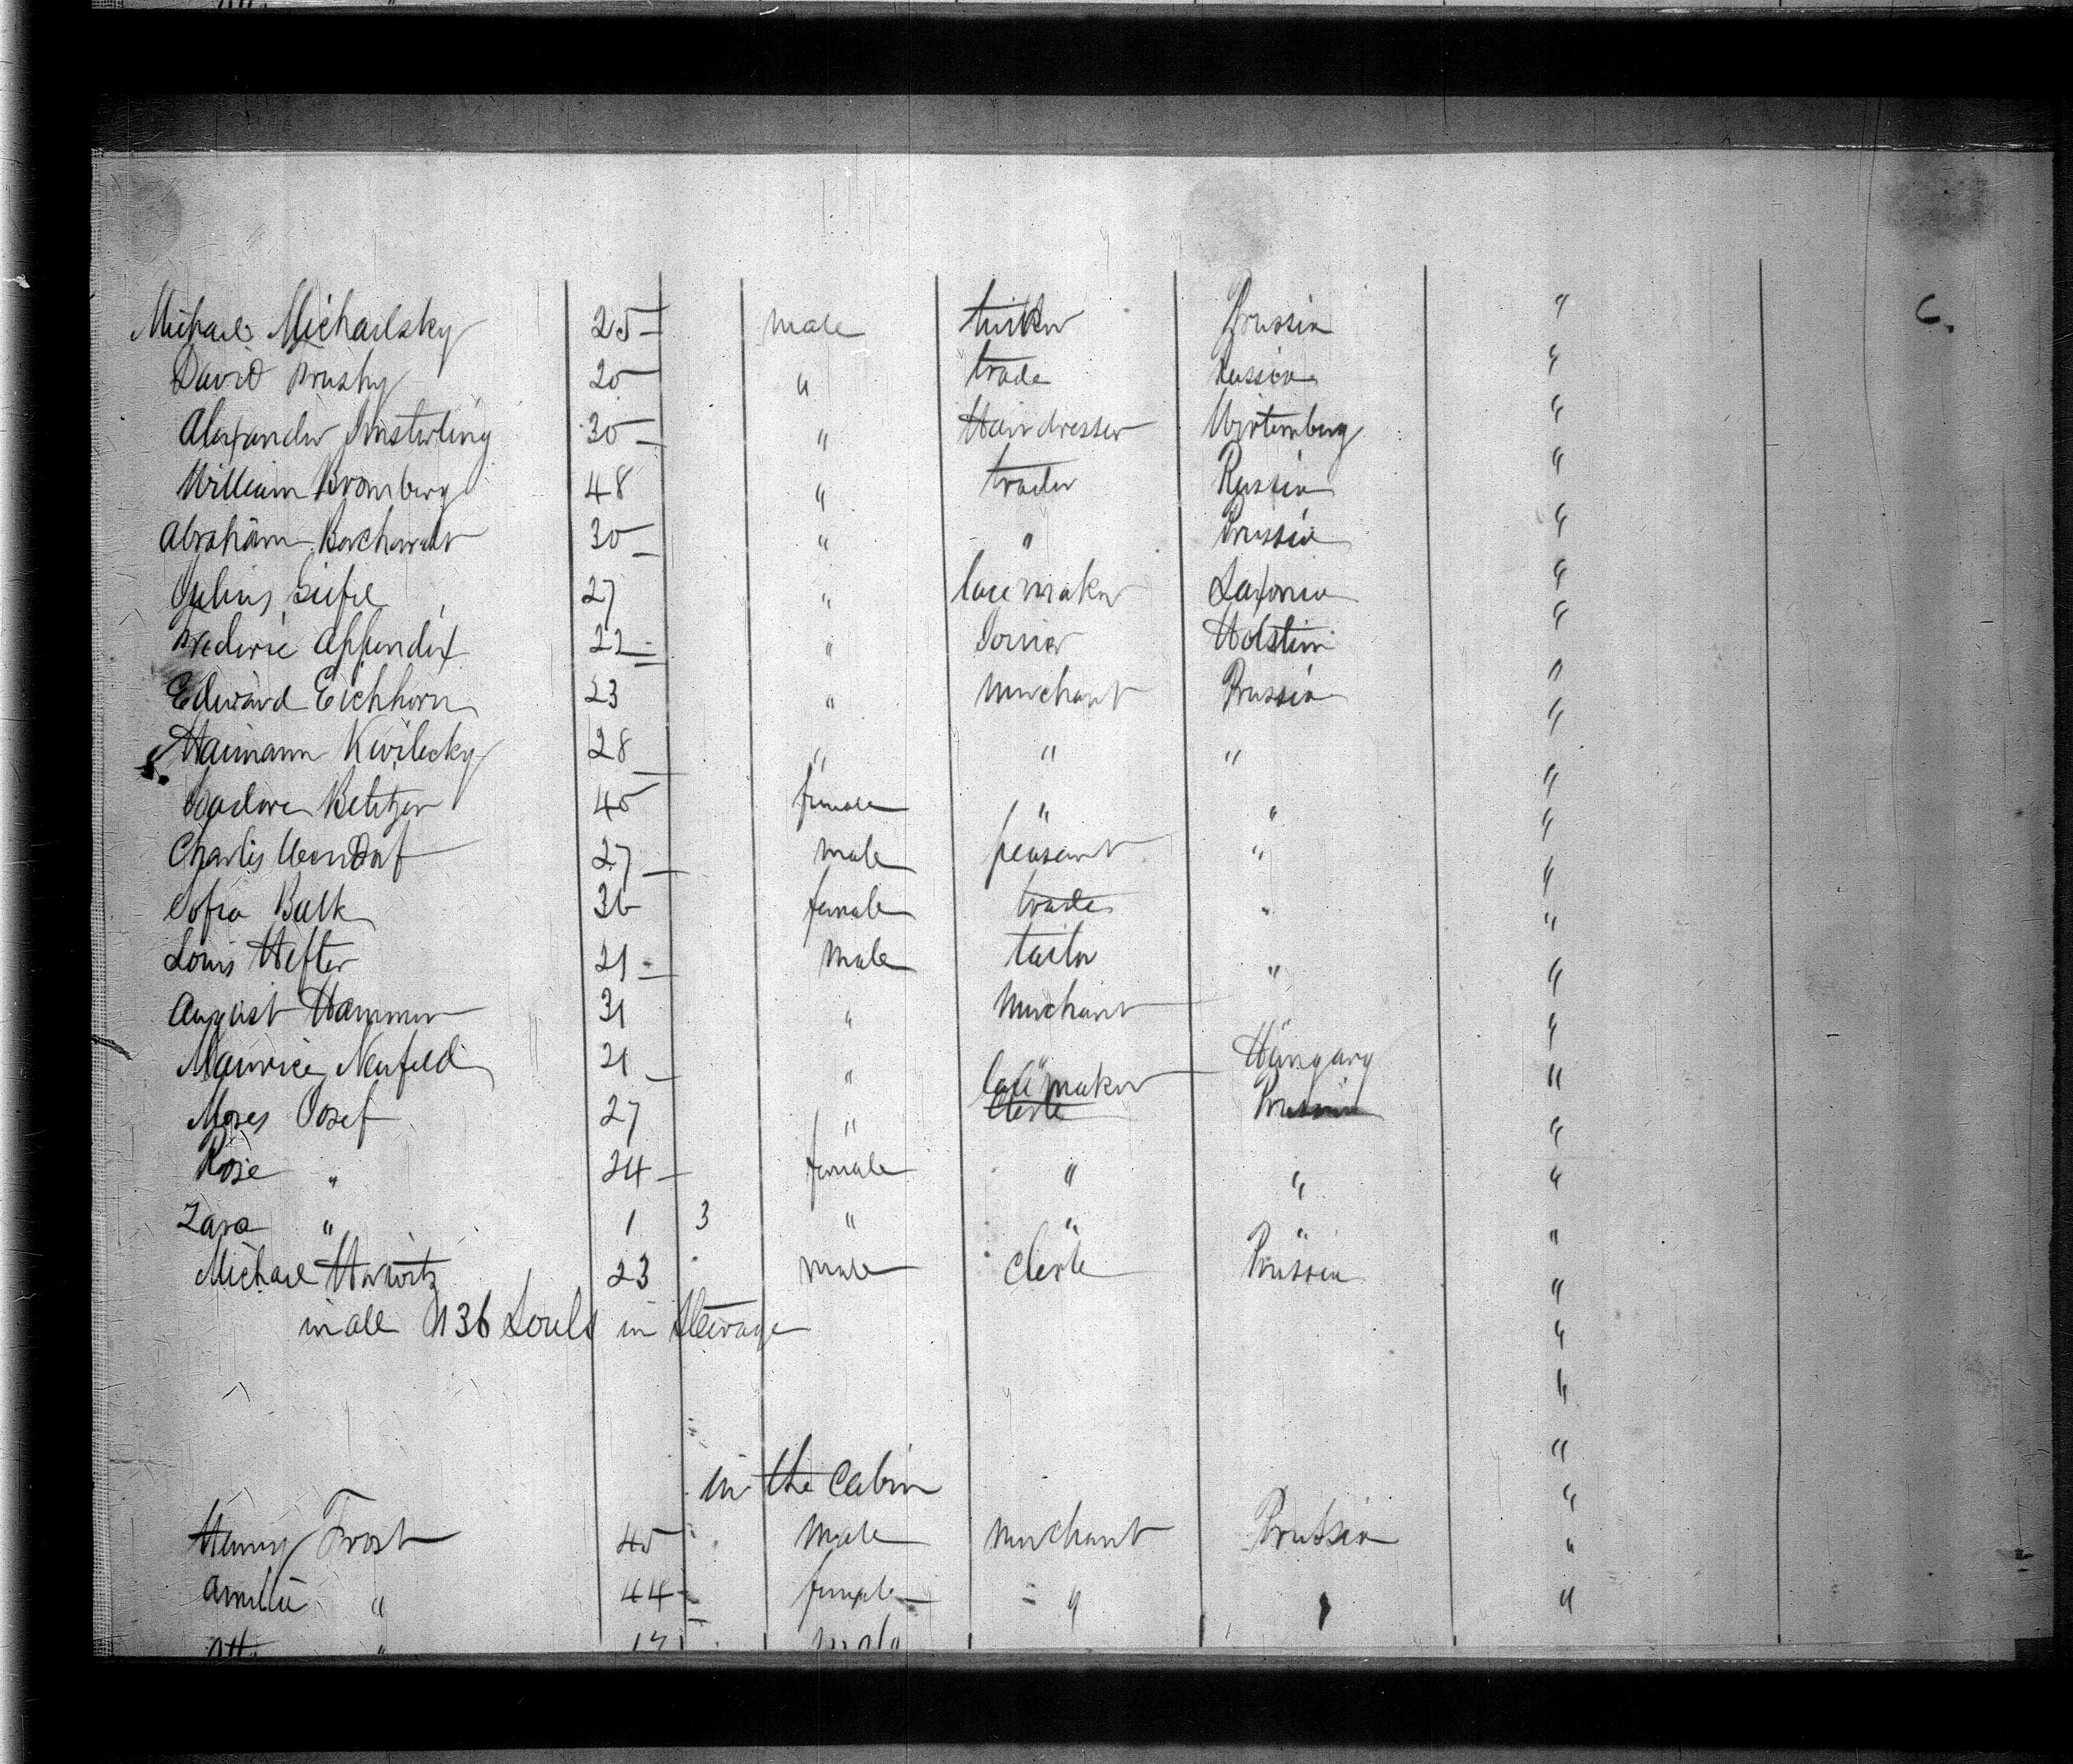 6.
Michael Michailsky 25 male Prussia "
David 20 " trade Russia "
Alexander 30 " Hairdresser Wirtemberg "
William Bromberg 48 " trader Russia "
Abraham 30 " " Prussia "
Julius 27 " lace maker Saxonia "
Frederic Appendix 22 " Joiner Holstein "
Edward Eichhorn 23 " merchant Prussia "
Haimann Kwilecky 28 " " " "
45 female " " "
Charles 27 male peasant " "
Sofia Balk 36 female trade " "
Louis Hefter 21 male tailor " "
August Hammer 31 " merchant "
Maurice Neufeld 21 " " Hungary "
lace maker
Moses Josef 27 " Clerk Prussia "
Rose " 24 female " " "
Zara " 1 3 " " " "
Michael Horwitz 23 male Clerk Prussia "
in all 136 Souls in Steerage "
in the Cabin
Henry Frost 45 male merchant Prussia "
Amilie " 44 female " " "
" male